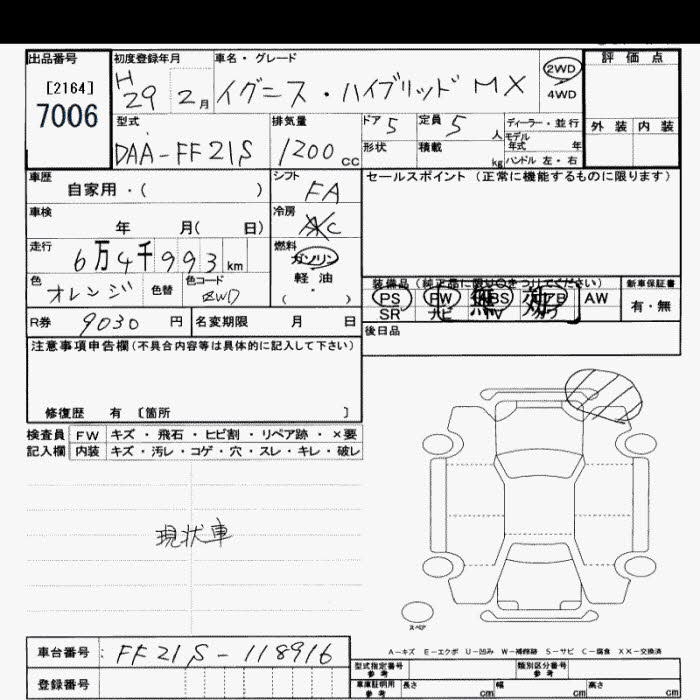 出品番号 初度登録年月 車名・グレード 評価点
[2164] H 29 2月 イグニス・ハイブリッド MX 2WD
7006 4WD
型式 排気量 ドア 5 定員 5 人 ディーラー・並行 外装 内装
DAA-FF21S 1200 cc 形状 積載 kg モデル年式 年
ハンドル 左・右
車歴 シフト セールスポイント (正常に機能するものに限ります)
自家用・( ) FA
車検 冷房
年 月( 日) AC
走行 燃料
6万4千993km ガソリン
軽油
色 色替 色コード ( )
オレンジ ZWD
装備品 (純正品に限り○をつけてください) 新車保証書
PS PW ABS AB AW 有・無
SR ナビ TV カワ
無効
R券 9030 円 名変期限 月 日 後日品
注意事項申告欄(不具合内容等は具体的に記入して下さい)
修復歴 有 〔箇所 〕
検査員 FW キズ・飛石・ヒビ割・リペア跡・×要
記入欄 内装 キズ・汚レ・コゲ・穴・スレ・キレ・破レ
現状車
スペア
A-キズ E-エクボ U-凹み W-補修跡 S-サビ C-腐食 XX-交換済
車台番号:FF21S-118916
登録番号
型式指定番号 参考 類別区分番号 参考
車庫証明用 参考 長さ cm 幅 cm 高さ cm